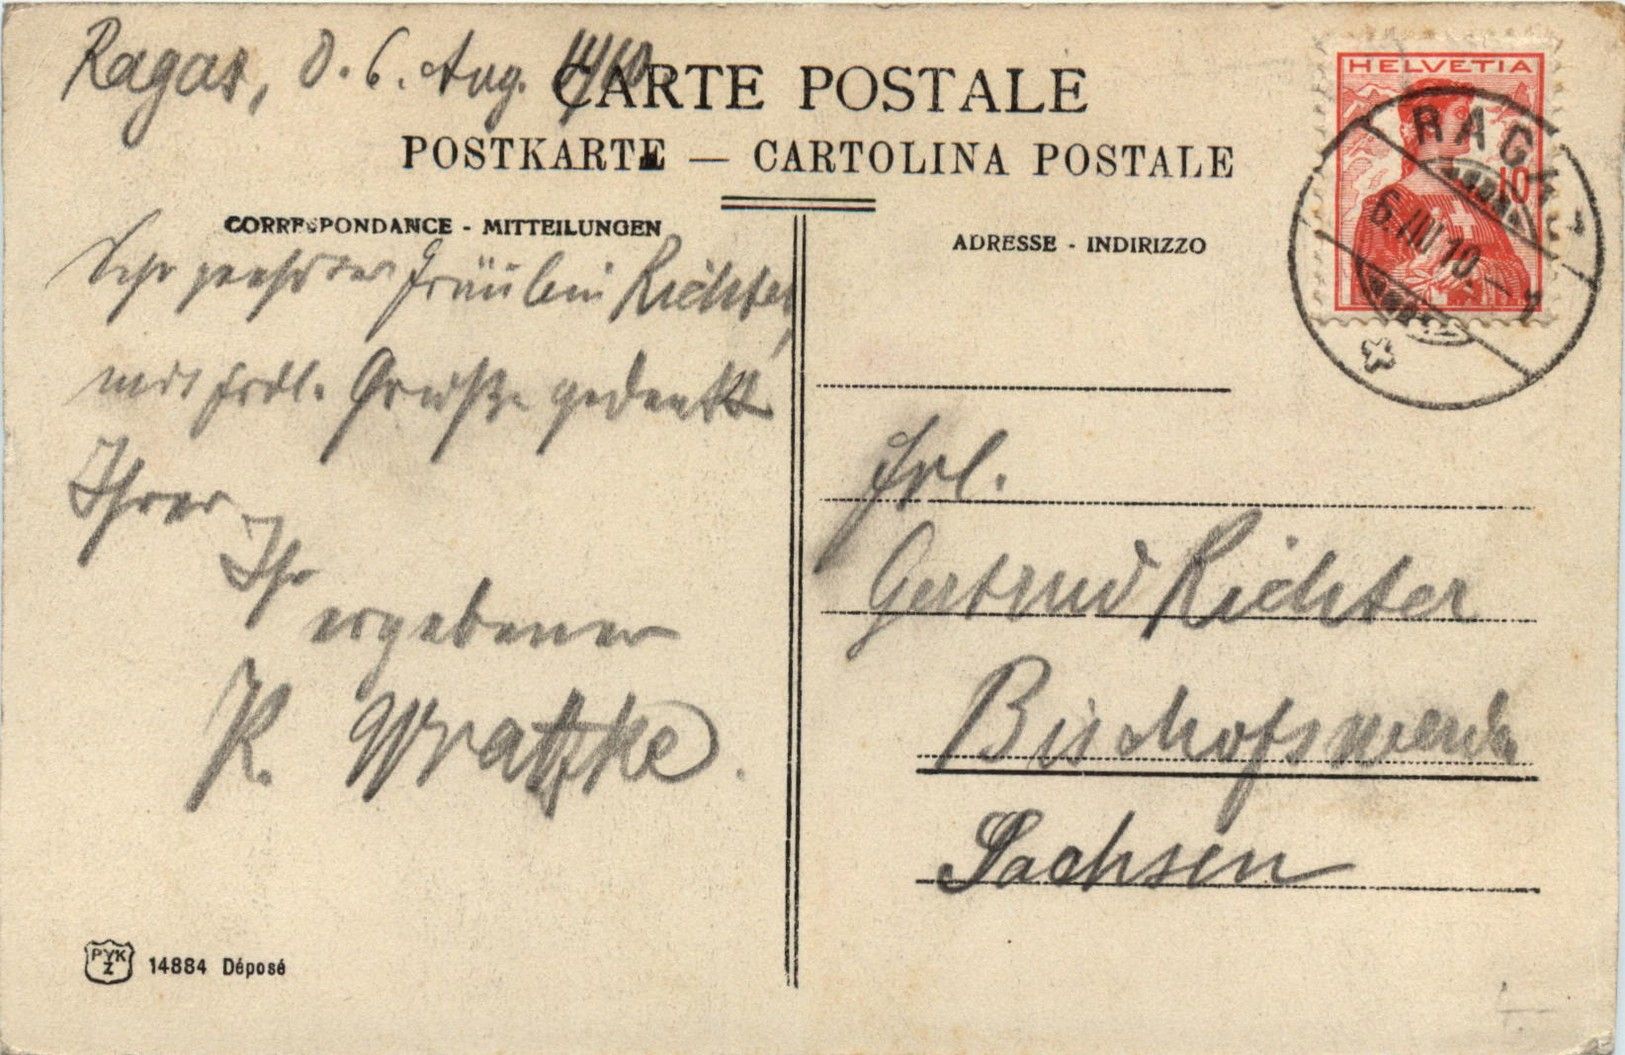 Ragaz, d. 6. Aug. 1910.
CARTE POSTALE
POSTKARTE — CARTOLINA POSTALE
CORRESPONDANCE - MITTEILUNGEN
Sehr geehrtes Fräulein Richter,
mit frdl. Grüße gedenkt
Ihrer
Ihr
ergebener
K. Wratzke.
14884 Déposé
PYK
Z
ADRESSE - INDIRIZZO
HELVETIA
10
RAGAZ
6. VIII 10. - 7
Frl.
Gertrud Richter
Bischofswerda
Sachsen